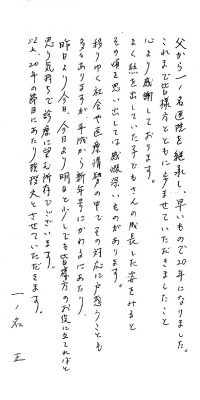 父から一ノ名医院を継承し、早いもので20年になりました。
これまで皆様方とともに歩ませていただきましたこと
心より感謝しております。
よく熱を出していた子どもさんの成長した姿をみると
その頃を思い出しては感慨深いものがあります。
移りゆく社会や医療情勢の中でその対応に戸惑うことも
多々ありますが、平成から新年号にかわるにあたり、
昨日より今日、今日より明日と少しでも皆様方のお役に立てればと
思う気持ちで診療に望む所存でございます。
以上、20年の節目にあたり挨拶文とさせていただきます。
一ノ名 正